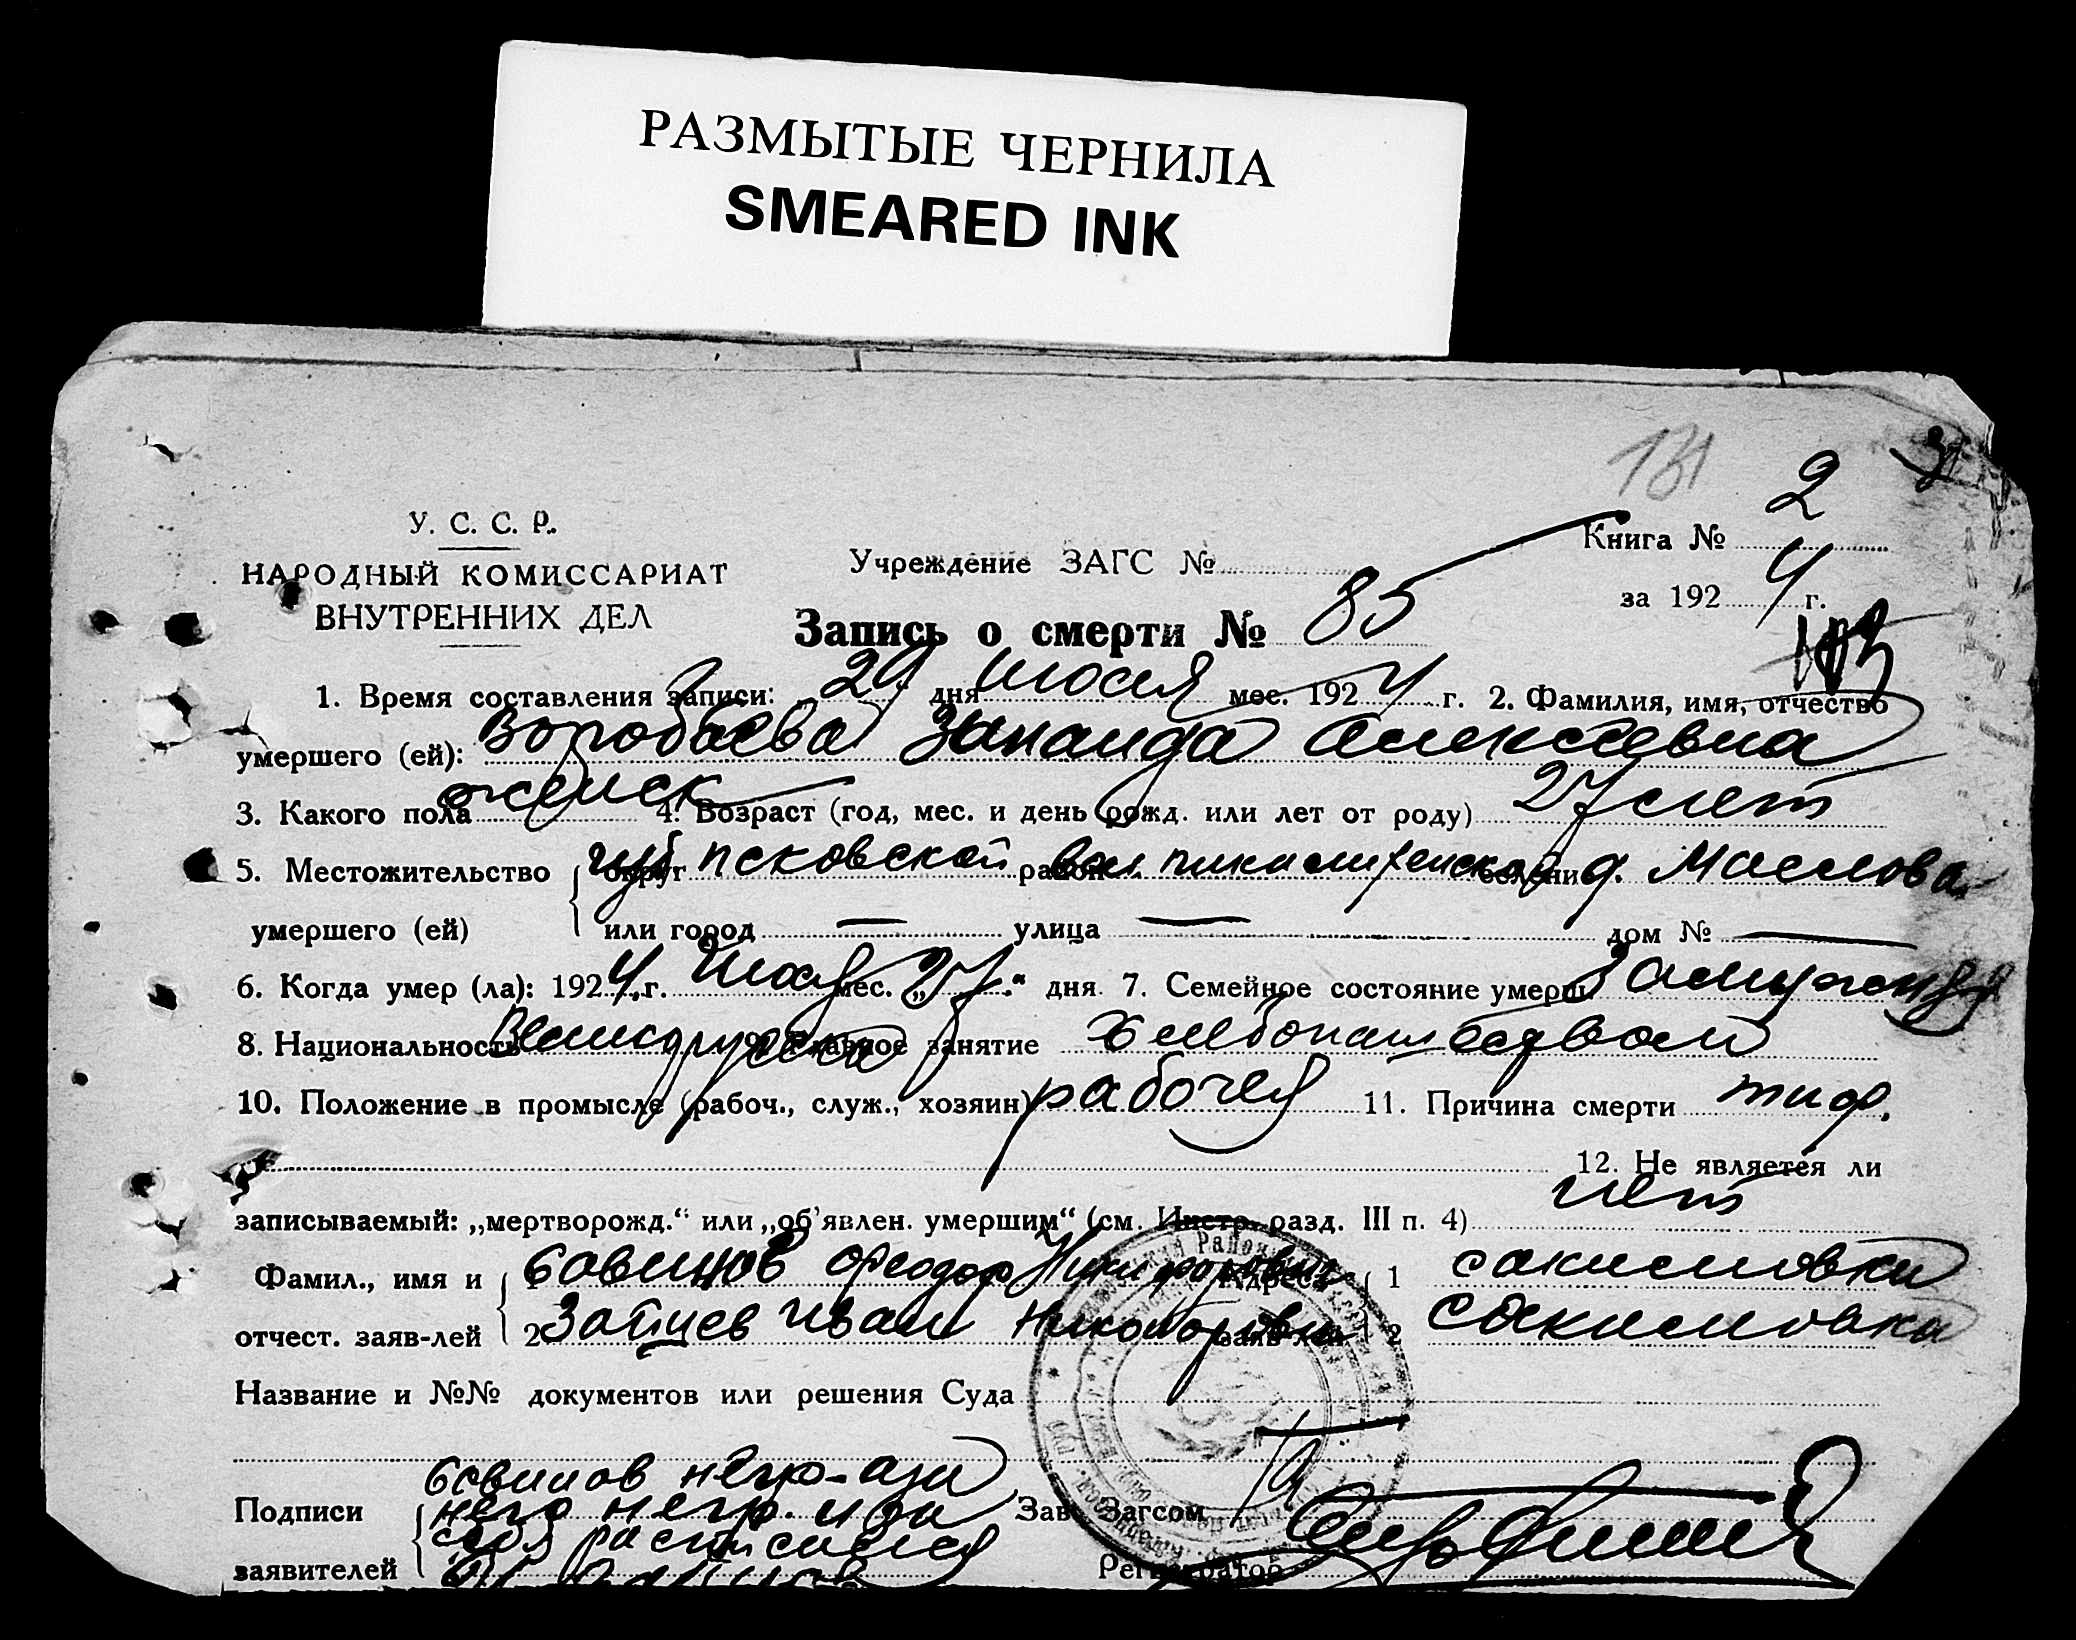 РАЗМЫТЫЕ ЧЕРНИЛА
SMEARED INK
131
У. С. С. Р.
НАРОДНЫЙ КОМИССАРИАТ
ВНУТРЕННИХ ДЕЛ
Учреждение ЗАГС №
Книга № 2
за 1924 г.
Запись о смерти № 85
103
1. Время составления записи: 29 дня июля мес. 1924 г. 2. Фамилия, имя, отчество
умершего (ей): Воробьева Зинаида Алексевна
3. Какого пола женск 4. Возраст (год, мес. и день рожд. или лет от роду) 27 лет
5. Местожительство округ губ псковской район вол селение д. Маслова
умершего (ей) или город — улица — дом № —
6. Когда умер (ла): 1924 г. Июля мес. „27" дня 7. Семейное состояние умерш. Замужняя
8. Национальность Великорусска 9. Главное занятие хлебопашеством
10. Положение в промысле (рабоч., служ., хозяин) рабочая 11. Причина смерти тиф.
12. Не является ли
записываемый: „мертворожд." или „об'явлен. умершим" (см. Инстр. разд. III п. 4) нет
Фамил., имя и 1 Феодор Никифорович Адреса 1
отчест. заяв-лей 2 Зайцев Иван заяв-лей 2
Название и №№ документов или решения Суда
негр-
Подписи него негр. и за Зав. Загсом
заявителей себя расписался Регистратор